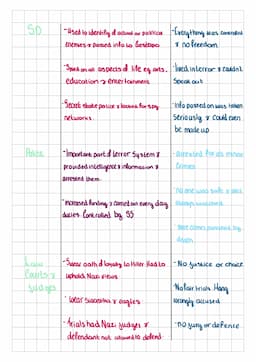 SD
- Used to identify of actual or political
enemies & passed info to Gestapo
- Everything was controlled
& no freedom
Spied on all aspects of life eg arts,
education & entertainment
lived in terror & couldn't
Speak out
Secret state police & looked for spy
networks.
Info passed on was taken
seriously & could even
be made up
Police
- Important part of terror System &
provided intelligence & information &
arrested them.
- arrested for as minor
crimes
- No one was safe &
always watched
- Increased funding & carried on every day
duties. Controlled by SS
crimes punished by
death
Law
Courts &
judges
- Swear oath of loyalty to Hitler Had to
uphold Nazi views
- No justice or choice
- Wear Swastika & eagles
- Not fair trials Many
wrongly accused
- trials had Nazi judges &
defendant not allowed to defend
- no jury or defence